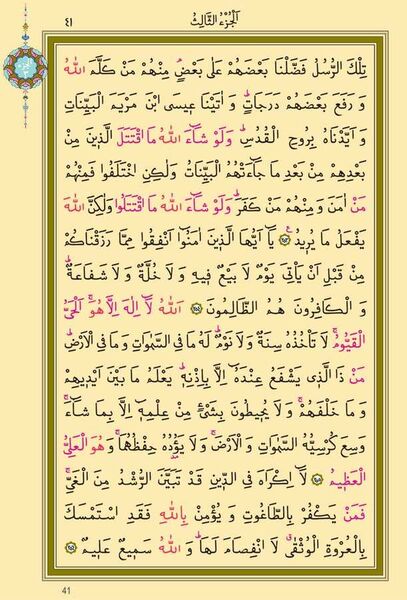 اَلْجُزْءُ الثَّالِثُ
٤١
تِلْكَ الرُّسُلُ فَضَّلْنَا بَعْضَهُمْ عَلٰى بَعْضٍۢ مِنْهُمْ مَنْ كَلَّمَ اللّٰهُ
وَ رَفَعَ بَعْضَهُمْ دَرَجَاتٍۜ وَ اٰتَيْنَا عِيسَى ابْنَ مَرْيَمَ الْبَيِّنَاتِ
وَ اَيَّدْنَاهُ بِرُوحِ الْقُدُسِۜ وَلَوْ شَٓاءَ اللّٰهُ مَا اقْتَتَلَ الَّذِينَ مِنْ
بَعْدِهِمْ مِنْ بَعْدِ مَا جَٓاءَتْهُمُ الْبَيِّنَاتُ وَلٰكِنِ اخْتَلَفُوا فَمِنْهُمْ
مَنْ اٰمَنَ وَ مِنْهُمْ مَنْ كَفَرَۜ وَلَوْ شَٓاءَ اللّٰهُ مَا اقْتَتَلُوا وَلٰكِنَّ اللّٰهَ
يَفْعَلُ مَا يُرِيدُ ﴿٢٥٣﴾ يَٓا اَيُّهَا الَّذِينَ اٰمَنُٓوا اَنْفِقُوا مِمَّا رَزَقْنَاكُمْ
مِنْ قَبْلِ اَنْ يَأْتِيَ يَوْمٌ لَا بَيْعٌ فِيهِ وَ لَا خُلَّةٌ وَ لَا شَفَاعَةٌۜ
وَ الْكَافِرُونَ هُمُ الظَّالِمُونَ ﴿٢٥٤﴾ اَللّٰهُ لَٓا اِلٰهَ اِلَّا هُوَۚ اَلْحَيُّ
الْقَيُّومُۚ لَا تَأْخُذُهُ سِنَةٌ وَ لَا نَوْمٌۜ لَهُ مَا فِي السَّمٰوَاتِ وَ مَا فِي الْاَرْضِۜ
مَنْ ذَا الَّذِي يَشْفَعُ عِنْدَهُٓ اِلَّا بِاِذْنِهِۜ يَعْلَمُ مَا بَيْنَ اَيْدِيهِمْ
وَ مَا خَلْفَهُمْۚ وَ لَا يُحِيطُونَ بِشَيْءٍ مِنْ عِلْمِهِٓ اِلَّا بِمَا شَٓاءَۚ
وَسِعَ كُرْسِيُّهُ السَّمٰوَاتِ وَ الْاَرْضَۚ وَ لَا يَؤُ۫دُهُ حِفْظُهُمَاۚ وَ هُوَ الْعَلِيُّ
الْعَظِيمُ ﴿٢٥٥﴾ لَٓا اِكْرَاهَ فِي الدِّينِ قَدْ تَبَيَّنَ الرُّشْدُ مِنَ الْغَيِّۚ
فَمَنْ يَكْفُرْ بِالطَّاغُوتِ وَ يُؤْمِنْ بِاللّٰهِ فَقَدِ اسْتَمْسَكَ
بِالْعُرْوَةِ الْوُثْقٰىۗ لَا انْفِصَامَ لَهَاۜ وَ اللّٰهُ سَمِيعٌ عَلِيمٌ ﴿٢٥٦﴾
41